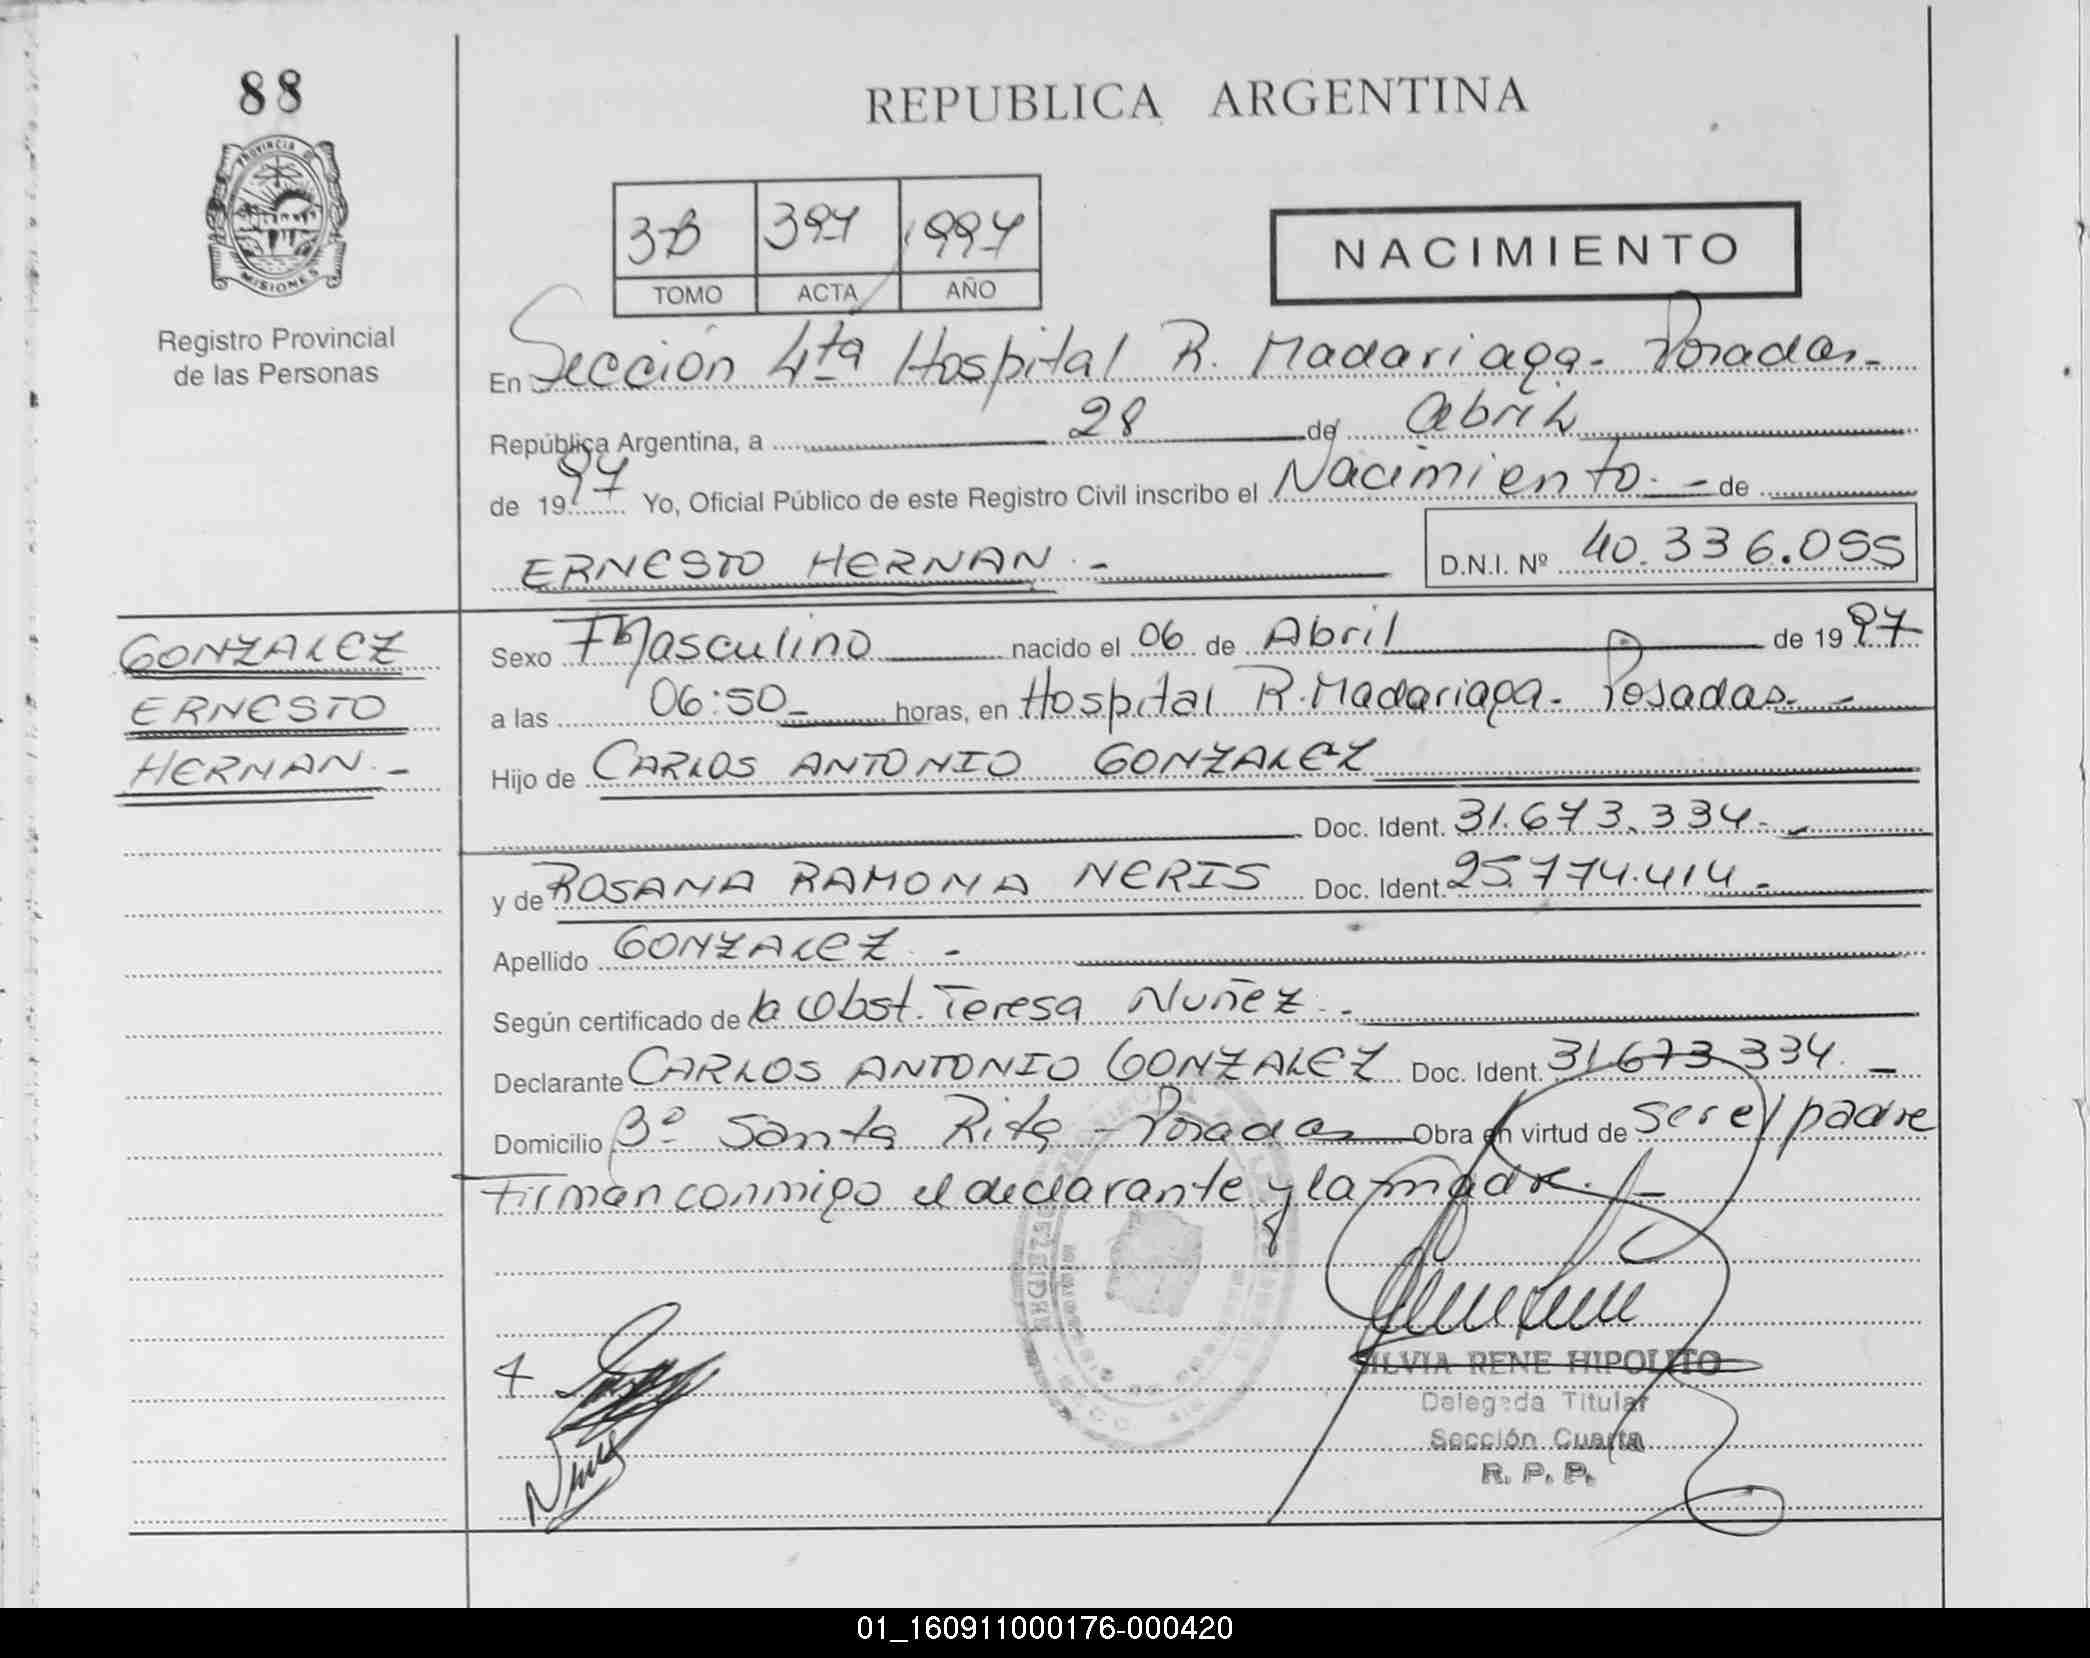 88
PROVINCIA DE
MISIONES
Registro Provincial
de las Personas
REPUBLICA ARGENTINA
3B 397 1997
TOMO ACTA AÑO
NACIMIENTO
En Sección 4ta Hospital R. Madariaga - Posadas -
República Argentina, a 28 de abril
de 1997 Yo, Oficial Público de este Registro Civil inscribo el Nacimiento. - de
ERNESTO HERNAN. - D.N.I. Nº 40.336.055
GONZALEZ
ERNESTO
HERNAN. -
Sexo Masculino nacido el 06 de Abril de 1997
a las 06:50 horas, en Hospital R. Madariaga - Posadas. -
Hijo de CARLOS ANTONIO GONZALEZ
Doc. Ident. 31.673.334. -
y de ROSANA RAMONA NERIS Doc. Ident. 25.774.414. -
Apellido GONZALEZ. -
Según certificado de la Obst. Teresa Nuñez. -
Declarante CARLOS ANTONIO GONZALEZ Doc. Ident. 31.673.334. -
Domicilio Bº Santa Rita - Posadas Obra en virtud de ser el padre
Firman conmigo el declarante y la madre. -
SILVIA RENE HIPOLITO
Delegada Titular
Sección Cuarta
R. P. P.
01_160911000176-000420